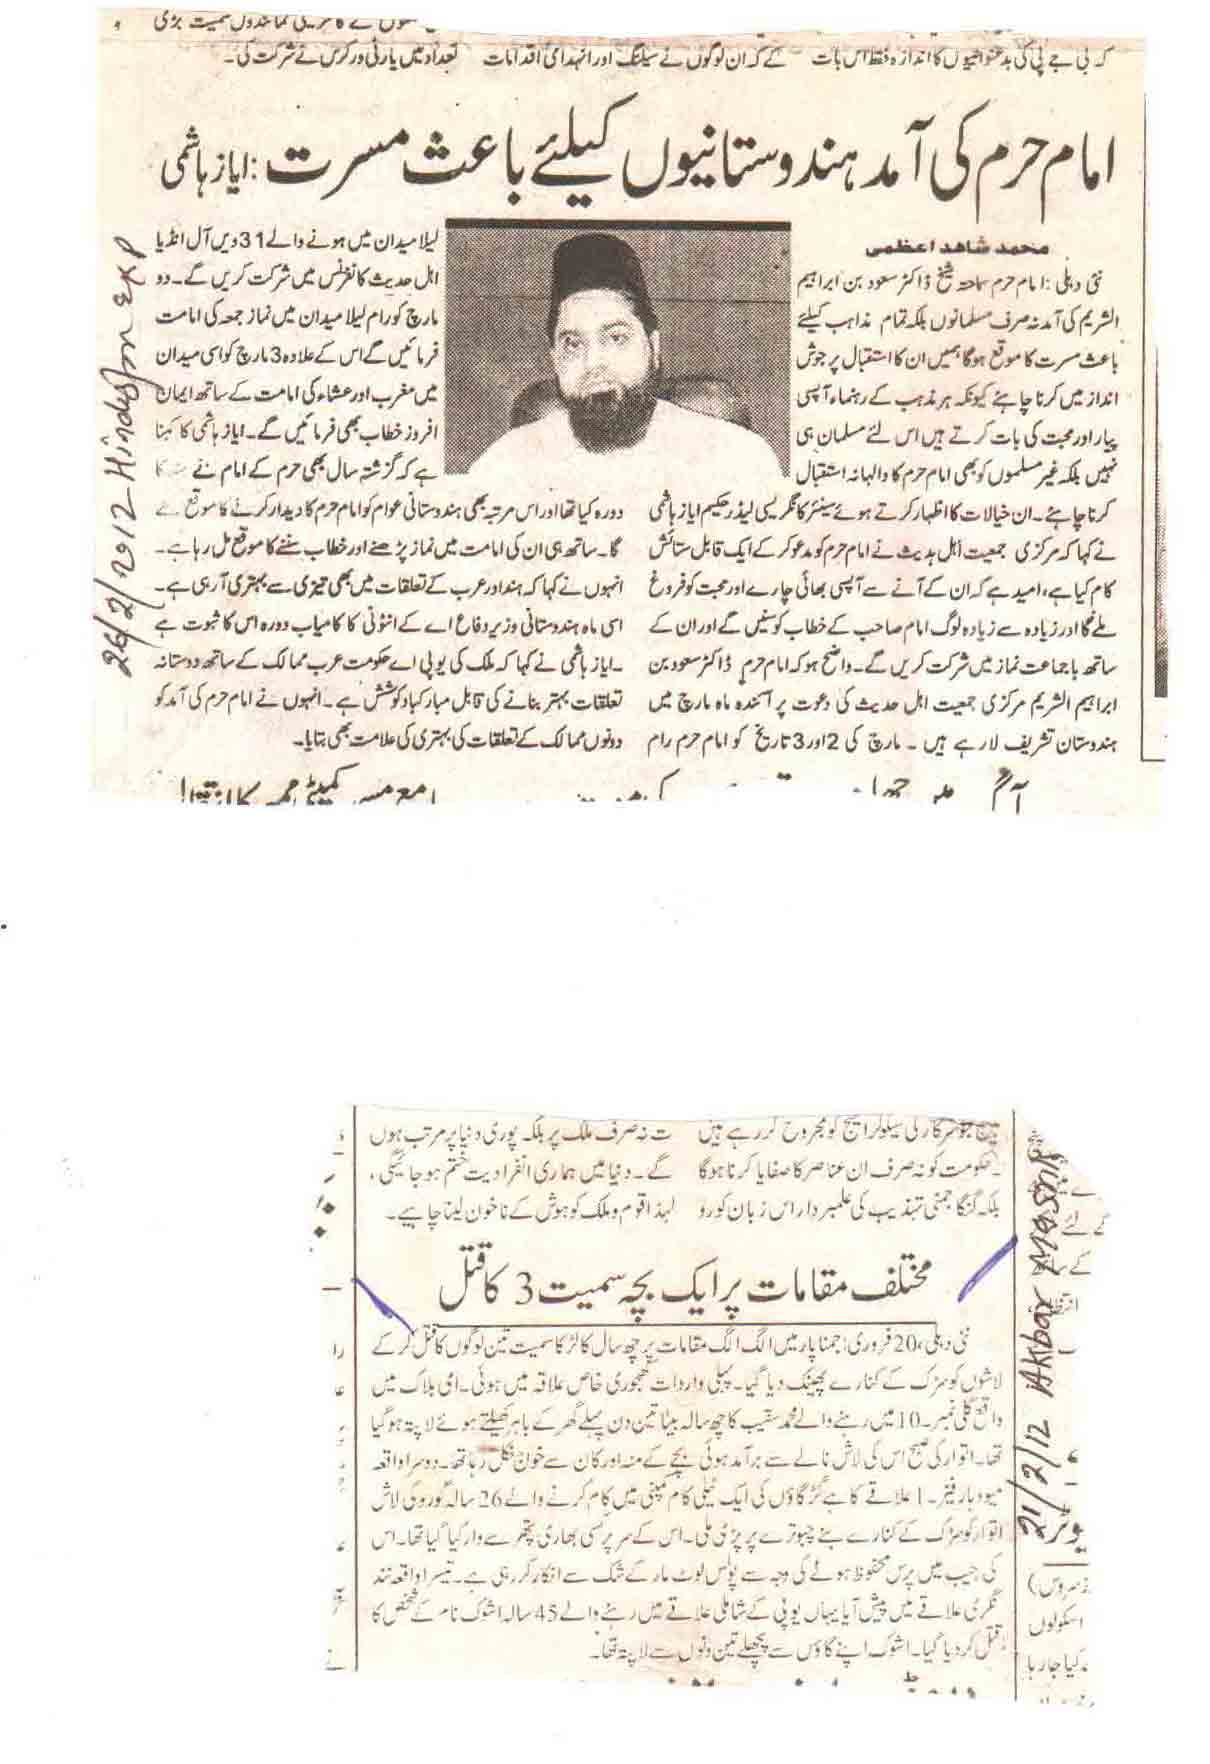 کہ بی جے پی کی بدعنوانیوں کا اندازہ فقط اس بات
کے کہ ان لوگوں نے سیلنگ اور انہدامی اقدامات
تعداد میں پارٹی ورکرس نے شرکت کی۔
امام حرم کی آمد ہندوستانیوں کیلئے باعث مسرت: ایاز ہاشمی
محمد شاہد اعظمی
نئی دہلی: امام حرم سماحۃ شیخ ڈاکٹر سعود بن ابراہیم
الشریم کی آمد نہ صرف مسلمانوں بلکہ تمام مذاہب کیلئے
باعث مسرت کا موقع ہوگا ہمیں ان کا استقبال پر جوش
انداز میں کرنا چاہئے کیونکہ ہر مذہب کے رہنماء آپسی
پیار اور محبت کی بات کرتے ہیں اس لئے مسلمان ہی
نہیں بلکہ غیر مسلموں کو بھی امام حرم کا والہانہ استقبال
کرنا چاہئے۔ ان خیالات کا اظہار کرتے ہوئے سینئر کانگریسی لیڈر حکیم ایاز ہاشمی
نے کہا کہ مرکزی جمعیت اہل حدیث نے امام حرم کو مدعو کر کے ایک قابل ستائش
کام کیا ہے، امید ہے کہ ان کے آنے سے آپسی بھائی چارے اور محبت کو فروغ
ملے گا اور زیادہ سے زیادہ لوگ امام صاحب کے خطاب کو سنیں گے اور ان کے
ساتھ باجماعت نماز میں شرکت کریں گے۔ واضح ہو کہ امام حرم ڈاکٹر سعود بن
ابراہیم الشریم مرکزی جمعیت اہل حدیث کی دعوت پر آئندہ ماہ مارچ میں
ہندوستان تشریف لا رہے ہیں۔ مارچ کی 2 اور 3 تاریخ کو امام حرم رام
لیلا میدان میں ہونے والے 31 ویں آل انڈیا
اہل حدیث کانفرنس میں شرکت کریں گے۔ دو
مارچ کو رام لیلا میدان میں نماز جمعہ کی امامت
فرمائیں گے اس کے علاوہ 3 مارچ کو اسی میدان
میں مغرب اور عشاء کی امامت کے ساتھ ایمان
افروز خطاب بھی فرمائیں گے۔ ایاز ہاشمی کا کہنا
ہے کہ گزشتہ سال بھی حرم کے امام نے کا
دورہ کیا تھا اور اس مرتبہ بھی ہندوستانی عوام کو امام حرم کا دیدار کرنے کا موقع ملے
گا۔ ساتھ ہی ان کی امامت میں نماز پڑھنے اور خطاب سننے کا موقع مل رہا ہے۔
انہوں نے کہا کہ ہند اور عرب کے تعلقات میں بھی تیزی سے بہتری آ رہی ہے۔
اسی ماہ ہندوستانی وزیر دفاع اے کے انٹونی کا کامیاب دورہ اس کا ثبوت ہے
۔ ایاز ہاشمی نے کہا کہ ملک کی یو پی اے حکومت عرب ممالک کے ساتھ دوستانہ
تعلقات بہتر بنانے کی قابل مبارکباد کوشش ہے۔ انہوں نے امام حرم کی آمد کو
دونوں ممالک کے تعلقات کی بہتری کی علامت بھی بتایا۔
26/2/2012 Hindustan Exp
جو سرکار کی سیکولر امیج کو مجروح کر رہے ہیں
۔ حکومت کو نہ صرف ان عناصر کا صفایا کرنا ہوگا
بلکہ گنگا جمنی تہذیب کی علمبردار اس زبان کو رو
ت نہ صرف ملک پر بلکہ پوری دنیا پر مرتب ہوں
گے۔ دنیا میں ہماری انفرادیت ختم ہو جائیگی،
لہذا قوم و ملک کو ہوش کے ناخون لینا چاہیے۔
مختلف مقامات پر ایک بچہ سمیت 3 کا قتل
نئی دہلی، 20 فروری: جمنا پار میں الگ الگ مقامات پر چھ سال کا لڑکا سمیت تین لوگوں کا قتل کر کے
لاشوں کو سڑک کے کنارے پھینک دیا گیا۔ پہلی واردات کھجوری خاص علاقہ میں ہوئی۔ ای بلاک میں
واقع گلی نمبر۔10 میں رہنے والے محمد سقیب کا چھ سالہ بیٹا تین دن پہلے گھر کے باہر کھیلتے ہوئے لاپتہ ہو گیا
تھا۔ اتوار کی صبح اس کی لاش نالے سے برآمد ہوئی بچے کے منہ اور کان سے خون نکل رہا تھا۔ دوسرا واقعہ
میور بہار فیز۔1 علاقے کا ہے گڑگاؤں کی ایک ٹیلی کام کمپنی میں کام کرنے والے 26 سالہ گورو کی لاش
اتوار کو سڑک کے کنارے بنے چبوترے پر پڑی ملی۔ اس کے سر پر کسی بھاری پتھر سے وار کیا گیا تھا۔ اس
کی جیب میں پرس محفوظ ہونے کی وجہ سے پولس لوٹ مار کے شک سے انکار کر رہی ہے۔ تیسرا واقعہ نند
نگری علاقے میں پیش آیا یہاں یو پی کے شاملی علاقے میں رہنے والے 45 سالہ اشوک نام کے شخص کا
قتل کر دیا گیا۔ اشوک اپنے گاؤں سے پچھلے تین دنوں سے لاپتہ تھا۔
21/2/12 Akbar Mashriq
اسکولوں